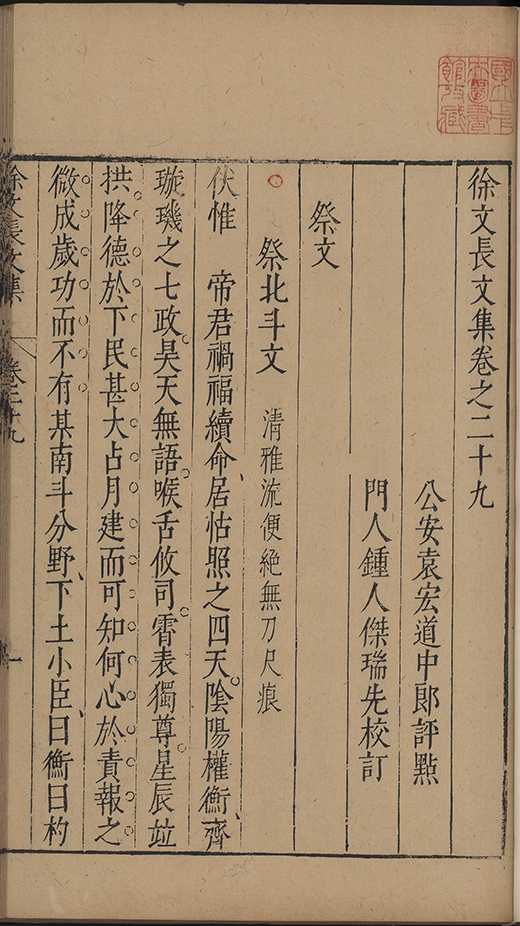 徐文長文集卷之二十九
公安袁宏道中郎評點
門人鍾人傑瑞先校訂
祭文
祭北斗文 清雅流便絕無刀尺痕
伏惟 帝君禍福續命居怙照之四天陰陽權衡齊
璇璣之七政昊天無語喉舌攸司霄表獨尊星辰竝
拱降德於下民甚大占月建而可知何心於責報之
微成歲功而不有某南斗分野下土小臣曰衡曰杓
徐文長文集 卷二十九 一
國立中央圖書館收藏